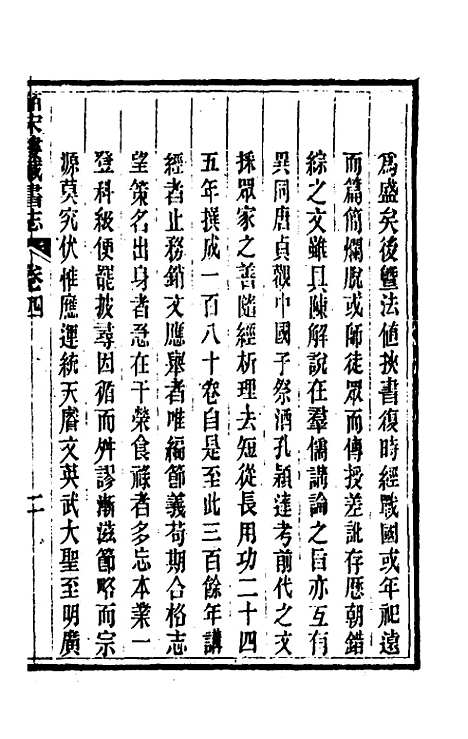 爲盛矣後曁法値挾書復時經戰國或年祀遠
而篇簡爛脫或師徒眾而傳授差訛存歷朝錯
綜之文雖具陳解說在羣儒講論之旨亦互有
異同唐貞觀中國子祭酒孔穎達考前代之文
採眾家之善隨經析理去短從長用功二十四
五年撰成一百八十卷自是至此三百餘年講
經者止務銷文應舉者唯編節義苟期合格志
望策名出身者急在干榮食祿者多忘本業一
登科級便罷披尋因循而舛謬漸滋節略而宗
源莫究伏惟應運統天睿文英武大聖至明廣
皕宋樓藏書志 卷四 二